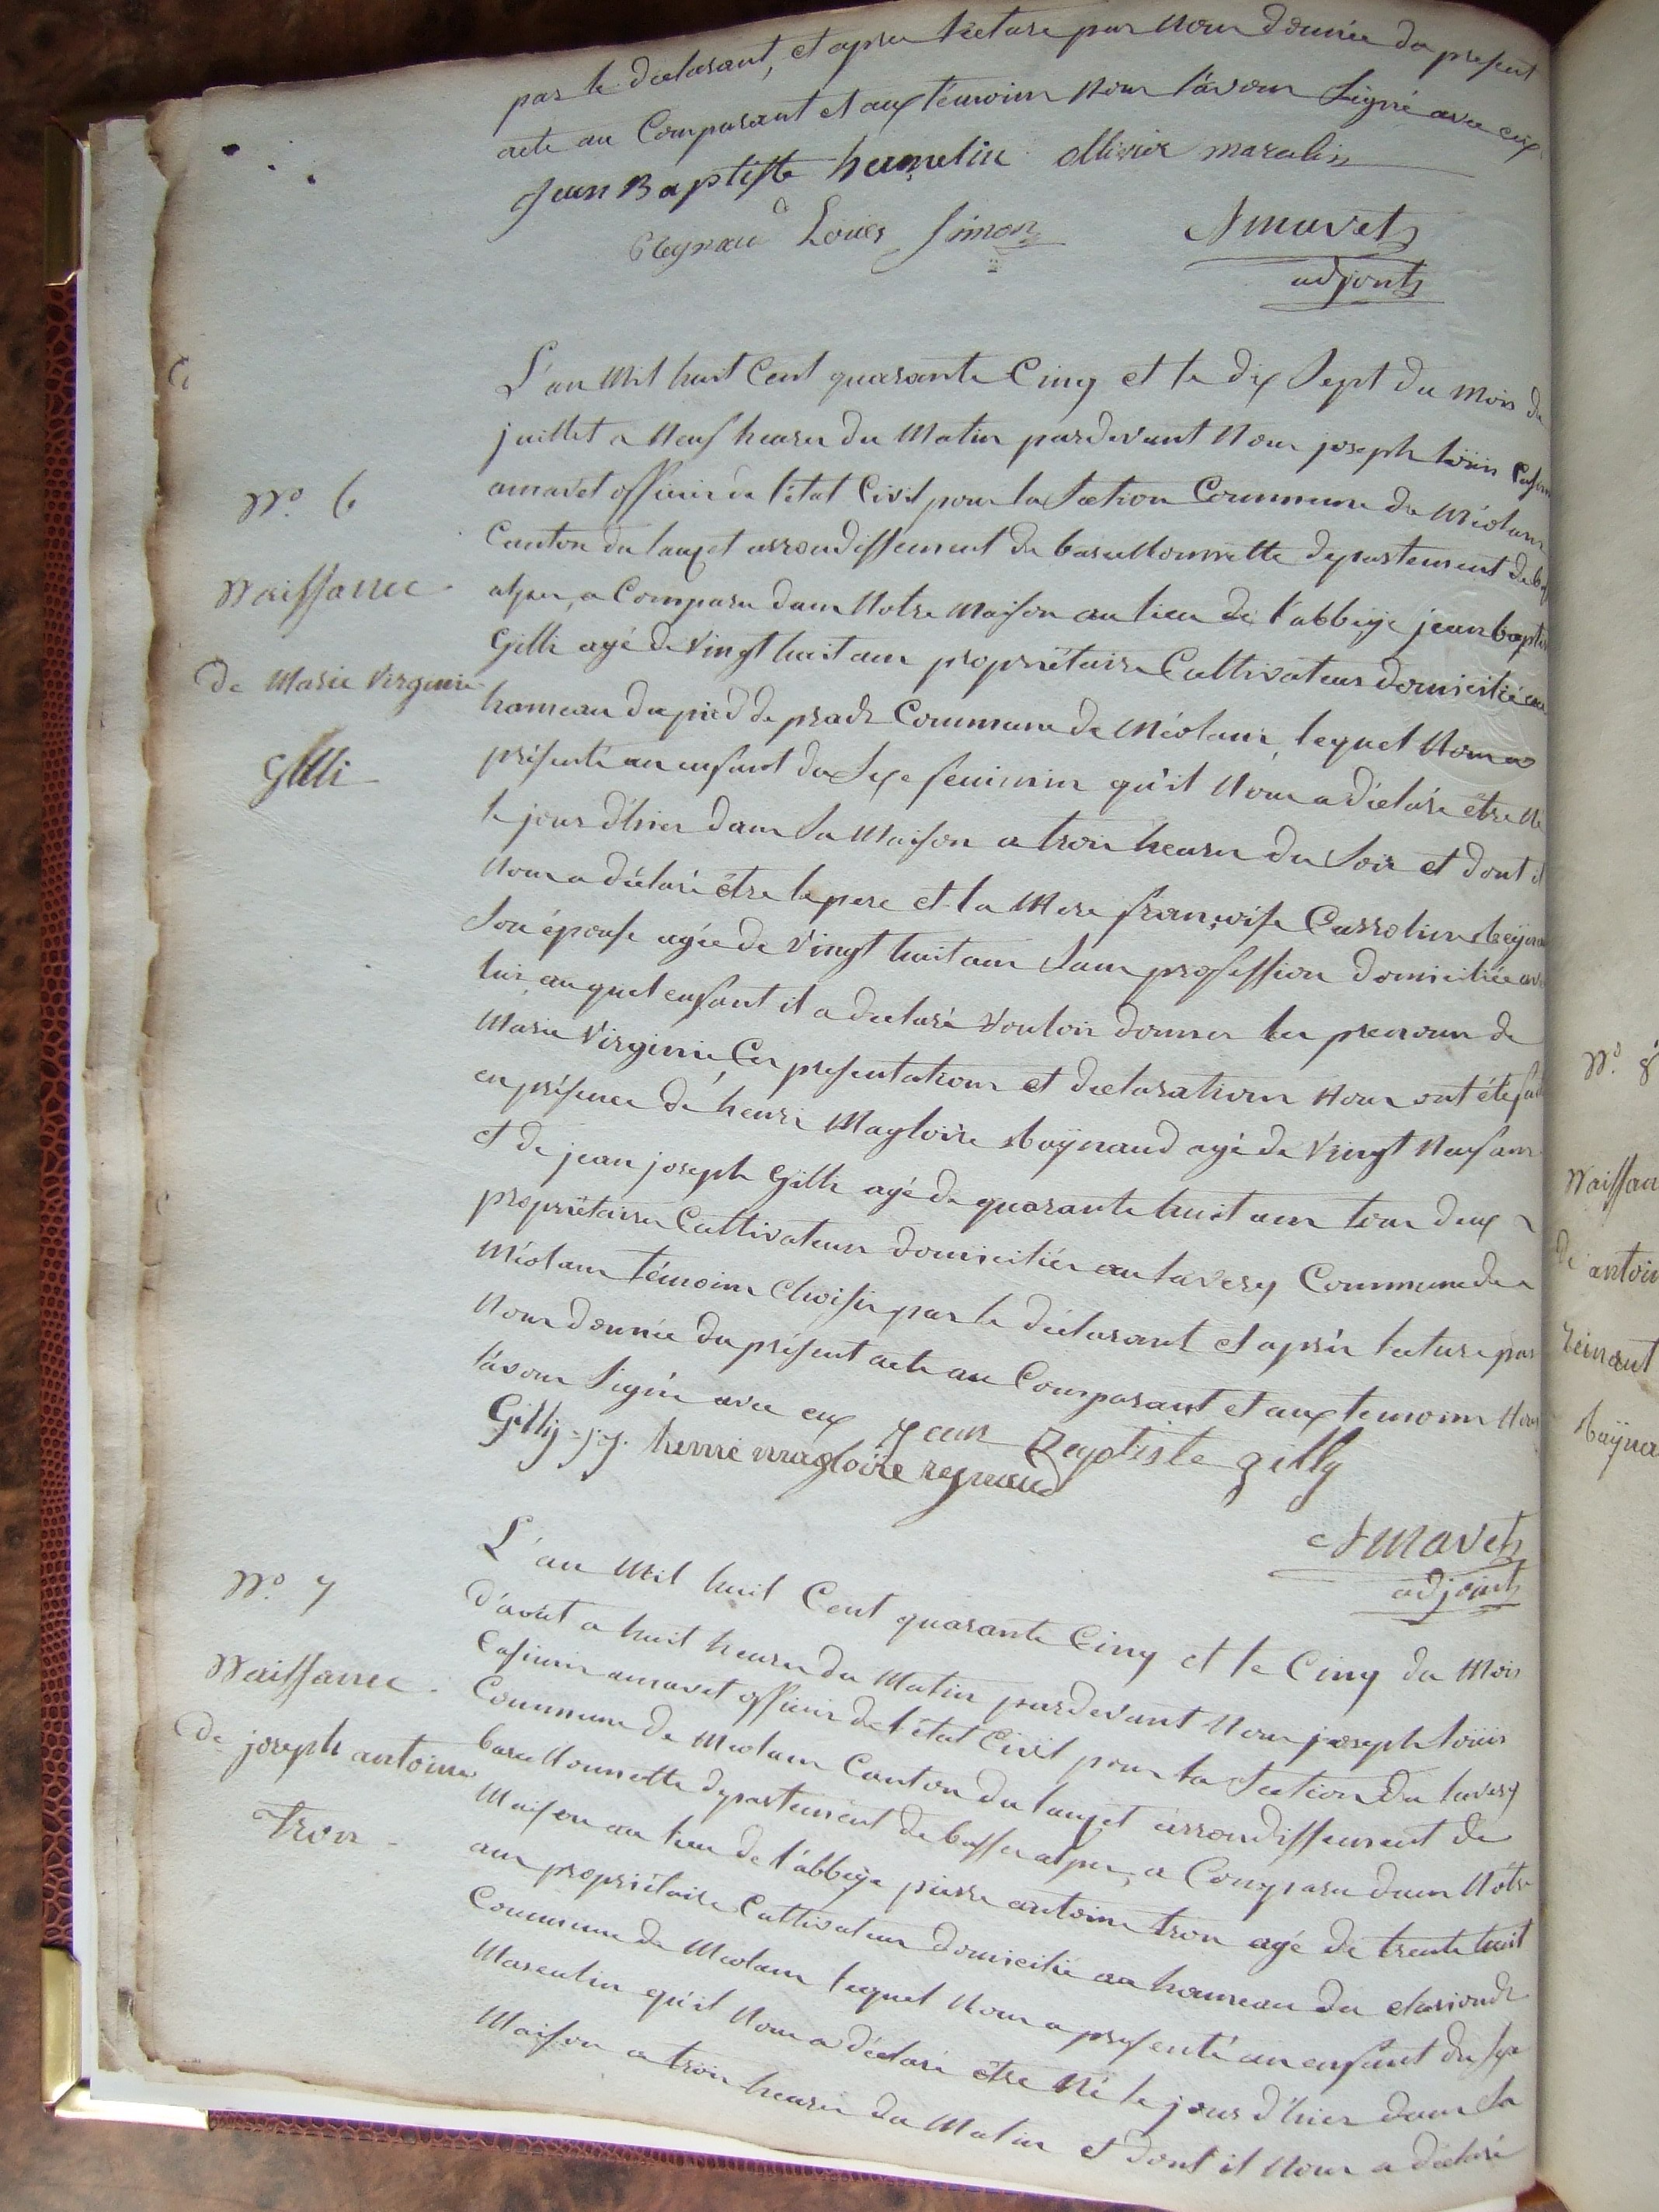 par le déclarant, et apres lecture par nous donnée du present
acte au Comparant et aux témoins nous l'avons signé avec eux
Jean Baptiste hermelin ollivier marcelin
Reynaud Louis Simon Amavet
adjoint
L'an mil huit Cent quarante Cinq et le dix Sept du mois de
juillet a neuf heures du matin pardevant nous joseph loüis Casim
amavet officier de l'état Civil pour la Section Commune de Méolans
Canton du lauzet arrondissement de barcellonnette departement de b
alpes, a Comparu dans notre maison au lieu de l'abbeÿe jean baptis
Gilli agé de vingt huit ans propriétaire Cultivateur domicilié au
N.º 6
Naissance
hameau du pied de prads Commune de Méolans, lequel nous a
de Marie Virginie
présenté un enfant du Sexe feminin qu'il nous a déclaré être né
Gilli
le jour d'hier dans sa maison a trois heures du Soir et dont il
nous a déclaré être le pere et la mere françoise Carroline Reÿna
Son épouse agée de vingt huit ans Sans profession domiciliée avec
lui, auquel enfant il a declaré vouloir donner les prenoms de
Marie Virginie, Ces presentations et declarations nous ont été fai
en présence de henri Magloire Reÿnaud agé de vingt neuf ans
et de jean joseph Gilli agé de quarante huit ans tous deux
propriétaires Cultivateurs domiciliés au laverq Commune de
Méolans témoins choisis par le déclarant et aprés lecture par
nous donnée du présent acte au Comparant et aux temoins nous
l'avons Signé avec eux Jean Baptiste gilly
Gilly j.j. henri magloire reynaud
Amavet
adjoint
N.º 7
L'an mil huit Cent quarante Cinq et le Cinq du mois
d'aout a huit heures du matin pardevant nous joseph loüis
Naissance
Casimir amavet officier de l'état Civil pour la Section du laverq
de joseph antoine
Commune de Meolans Canton du lauzet arrondissement de
Tron
barcellonnette departement de basses alpes, a Comparu dans nôtre
maison au lieu de l'abbeÿe pierre antoine tron agé de trente huit
ans propriétaire Cultivateur domicilié au hameau du clarionds
Commune de Meolans lequel nous a presenté un enfant du sexe
Masculin qu'il nous a déclaré être né le jour d'hier dans sa
Maison a trois heures du Matin et dont il nous a déclaré
N.º 8
Naissan
de antoin
Reÿna